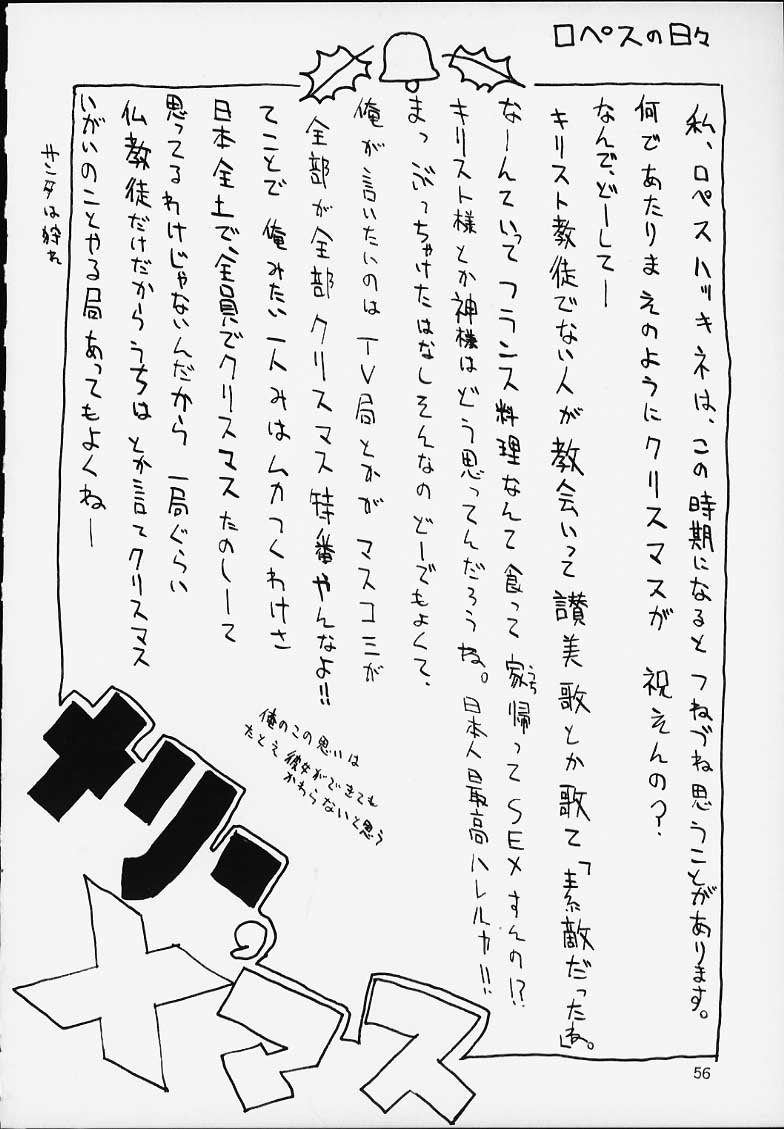 ロペスの日々
私、ロペスハッキネは、この時期になるとつねづね思うことがあります。
何であたりまえのようにクリスマスが 祝えんの?
なんで、どーしてー
キリスト教徒でない人が教会いって讃美歌とか歌て「素敵だったね。」
なーんていってフランス料理なんて食って家帰ってSEXすんの!?
うち
キリスト様とか神様はどう思ってんだろうね。日本人最高ハレルヤ!!
まっ ぶっちゃけたはなしそんなのどーでもよくて、
俺が言いたいのは TV局とかがマスコミが
全部が全部クリスマス特番やんなよ!!
てことで 俺みたい一人みはムカつくわけさ
日本全土で、全員でクリスマスたのしーて
思ってるわけじゃないんだから 一局ぐらい
仏教徒だけだからうちは とか言てクリスマス
いがいのことやる局あってもよくねー
サンタは狩れ
俺のこの思いは
たとえ彼女ができても
かわらないと思う
メリー
Xマス
56